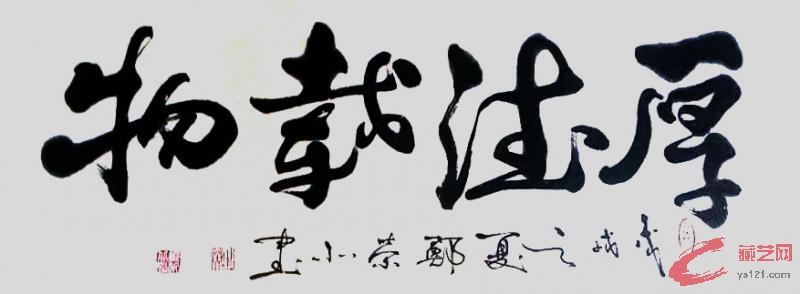 厚德载物
戌之夏鄭荣小书
藏艺网
ys121.com